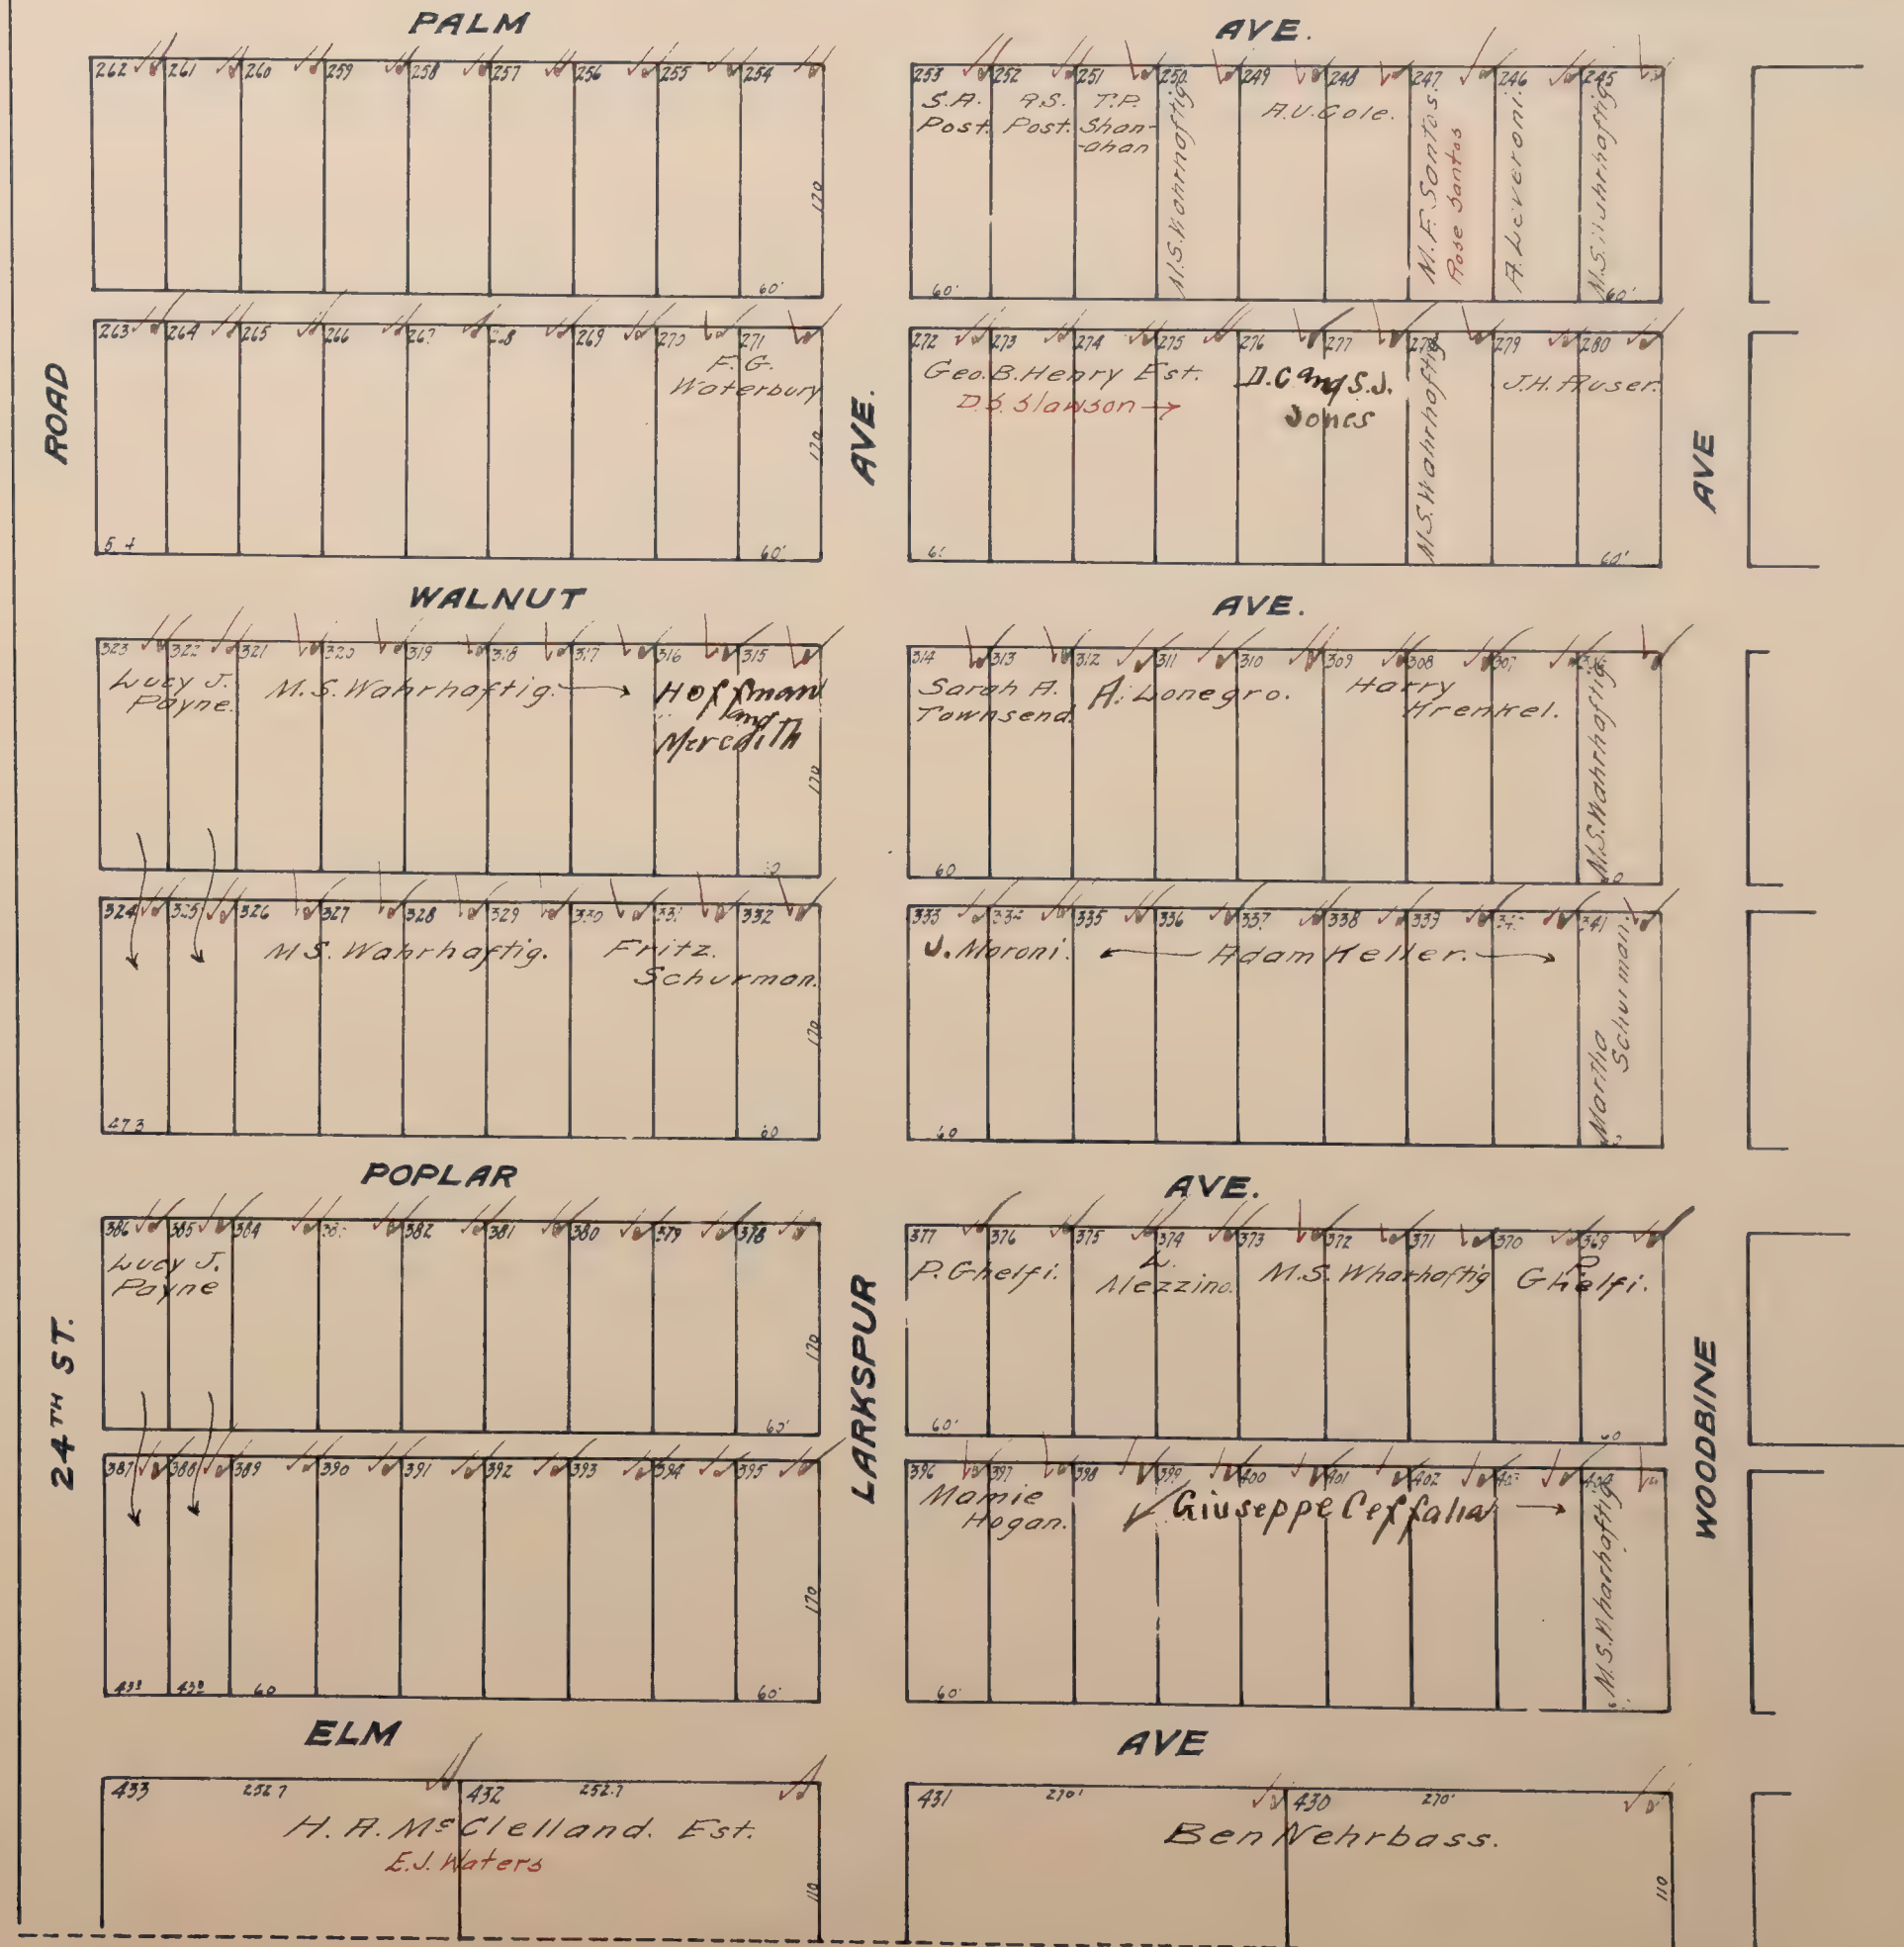 PALM AVE.
262 261 260 259 258 257 256 255 254
170
60'
253 252 251 250 249 248 247 246 245
S.A. Post.
R.S. Post.
T.P. Shan-
-ahan
M.S. Wahrhaftig
A.U. Cole.
M.F. Santos.
Rose Santos
A. Leveroni.
M.S. Wahrhaftig
60' 60'
ROAD
263 264 265 266 267 268 269 270 271
F.G.
Waterbury
170
60'
AVE.
272 273 274 275 276 277 278 279 280
Geo. B. Henry Est.
D.S. Slawson →
D.C and S.J.
Jones
M.S. Wahrhaftig
J.H. Auser.
60'
AVE
WALNUT AVE.
323 322 321 320 319 318 317 316 315
Lucy J.
Payne.
M.S. Wahrhaftig. →
Hoffman
and
Meredith
170
314 313 312 311 310 309 308 307 306
Sarah A.
Townsend
A. Lonegro.
Harry
Krenkel.
M.S. Wahrhaftig
60
324 325 326 327 328 329 330 331 332
M.S. Wahrhaftig.
Fritz.
Schurman.
170
473 60
333 334 335 336 337 338 339 340 341
J. Moroni.
← Adam Keller. →
Martha
Schurman.
60
POPLAR AVE.
386 385 384 383 382 381 380 379 378
Lucy J.
Payne
170
60'
377 376 375 374 373 372 371 370 369
P. Ghelfi.
L.
Mezzino.
M.S. Wharhaftig
P.
Ghelfi.
60' 60
24TH ST.
LARKSPUR
WOODBINE
387 388 389 390 391 392 393 394 395
170
433 433 60 60'
396 397 398 399 400 401 402 403 404
Mamie
Hogan.
Giuseppe Ceffalia →
M.S. Wharhaftig
60'
ELM AVE
433 252.7 432 252.7
H.A. McClelland. Est.
E.J. Waters
110
431 270' 430 270'
Ben Nehrbass.
110